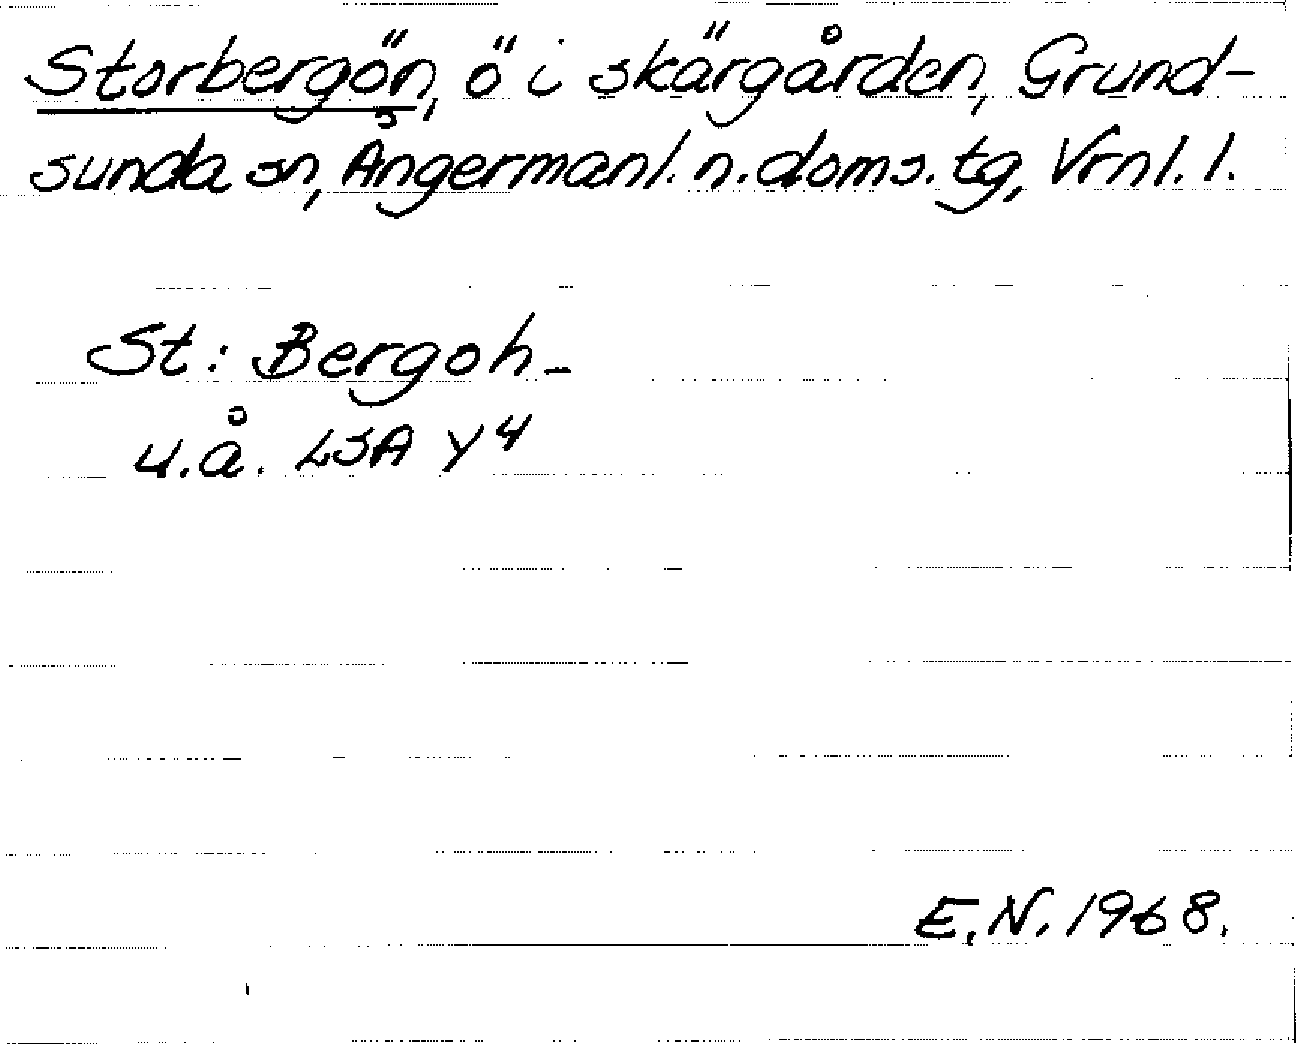 Storbergön, ö i skärgården, Grund-
sunda sn, Ångermanl. n. doms. tg, Vrnl. l.
St: Bergoh-
u.å. LSA Y4
E.N. 1968.